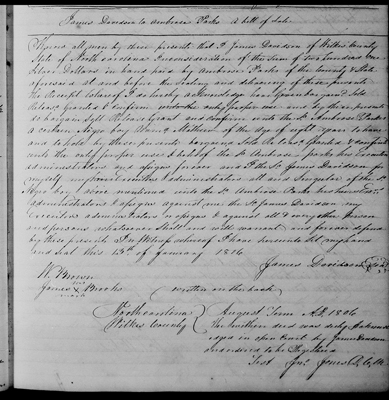 James Davidson to Ambrose Parks A bill of Sale
Know all men by these presents that I James Davidson of Wilkes County
State of North Carolina In consideration of the Sum of two hundred
Silver Dollars in hand paid by Ambrose Parks of the County & State
aforesaid at and before the Sealing and delivering of these presents
the Receipt whereof I do hereby acknowledge have bargained Sold
Released Granted & confirm unto the and by these presents
do bargain Sell Release Grant and confirm unto the Sd Ambrose Parks
a certain Negro boy of the age of eight years to have
and to hold by these presents bargained Sold Released Granted & confirmed
unto the only proper use & behoof the Sd Ambrose Parks his Executors
administrators and assigns forever and I the Sd James Davidson for
my Executors & administrators all and Singular of the Sd
Negro boy above mentioned unto the Sd Ambrose Parks his
administrators & assigns against me the Sd James Davidson my
Executors administrators assigns & against all & every other person
and persons whatsoever Shall and will warrant and forever defend
by these presents In Witness whereof I have hereunto Set my hand
and Seal this 13th of January 1806
James Davidson Seal
W. Brown
James Brooks
mark
written on the back
North Carolina
Wilkes County
August Term AD. 1806
The written deed was duly Acknowl
edged in open Court by James Davidson
and ordered to be Registered
Test